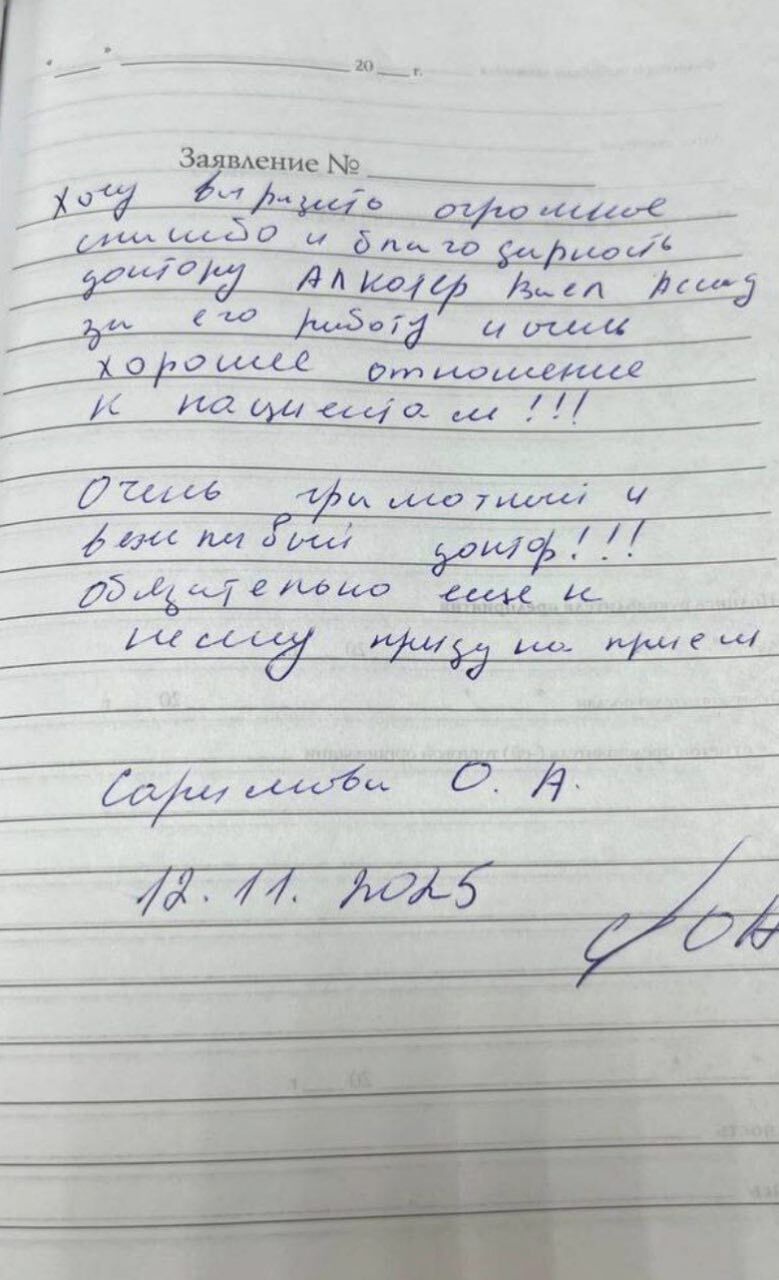 « » 20 г.
Заявление №
Хочу выразить огромное
спасибо и благодарность
доктору Алкотер Ваел Ассад
за его работу и очень
хорошее отношение
к пациентам!!!
Очень грамотный и
вежливый доктор!!!
Обязательно еще к
нему приду на прием
Саримова О. А.
12.11.2025